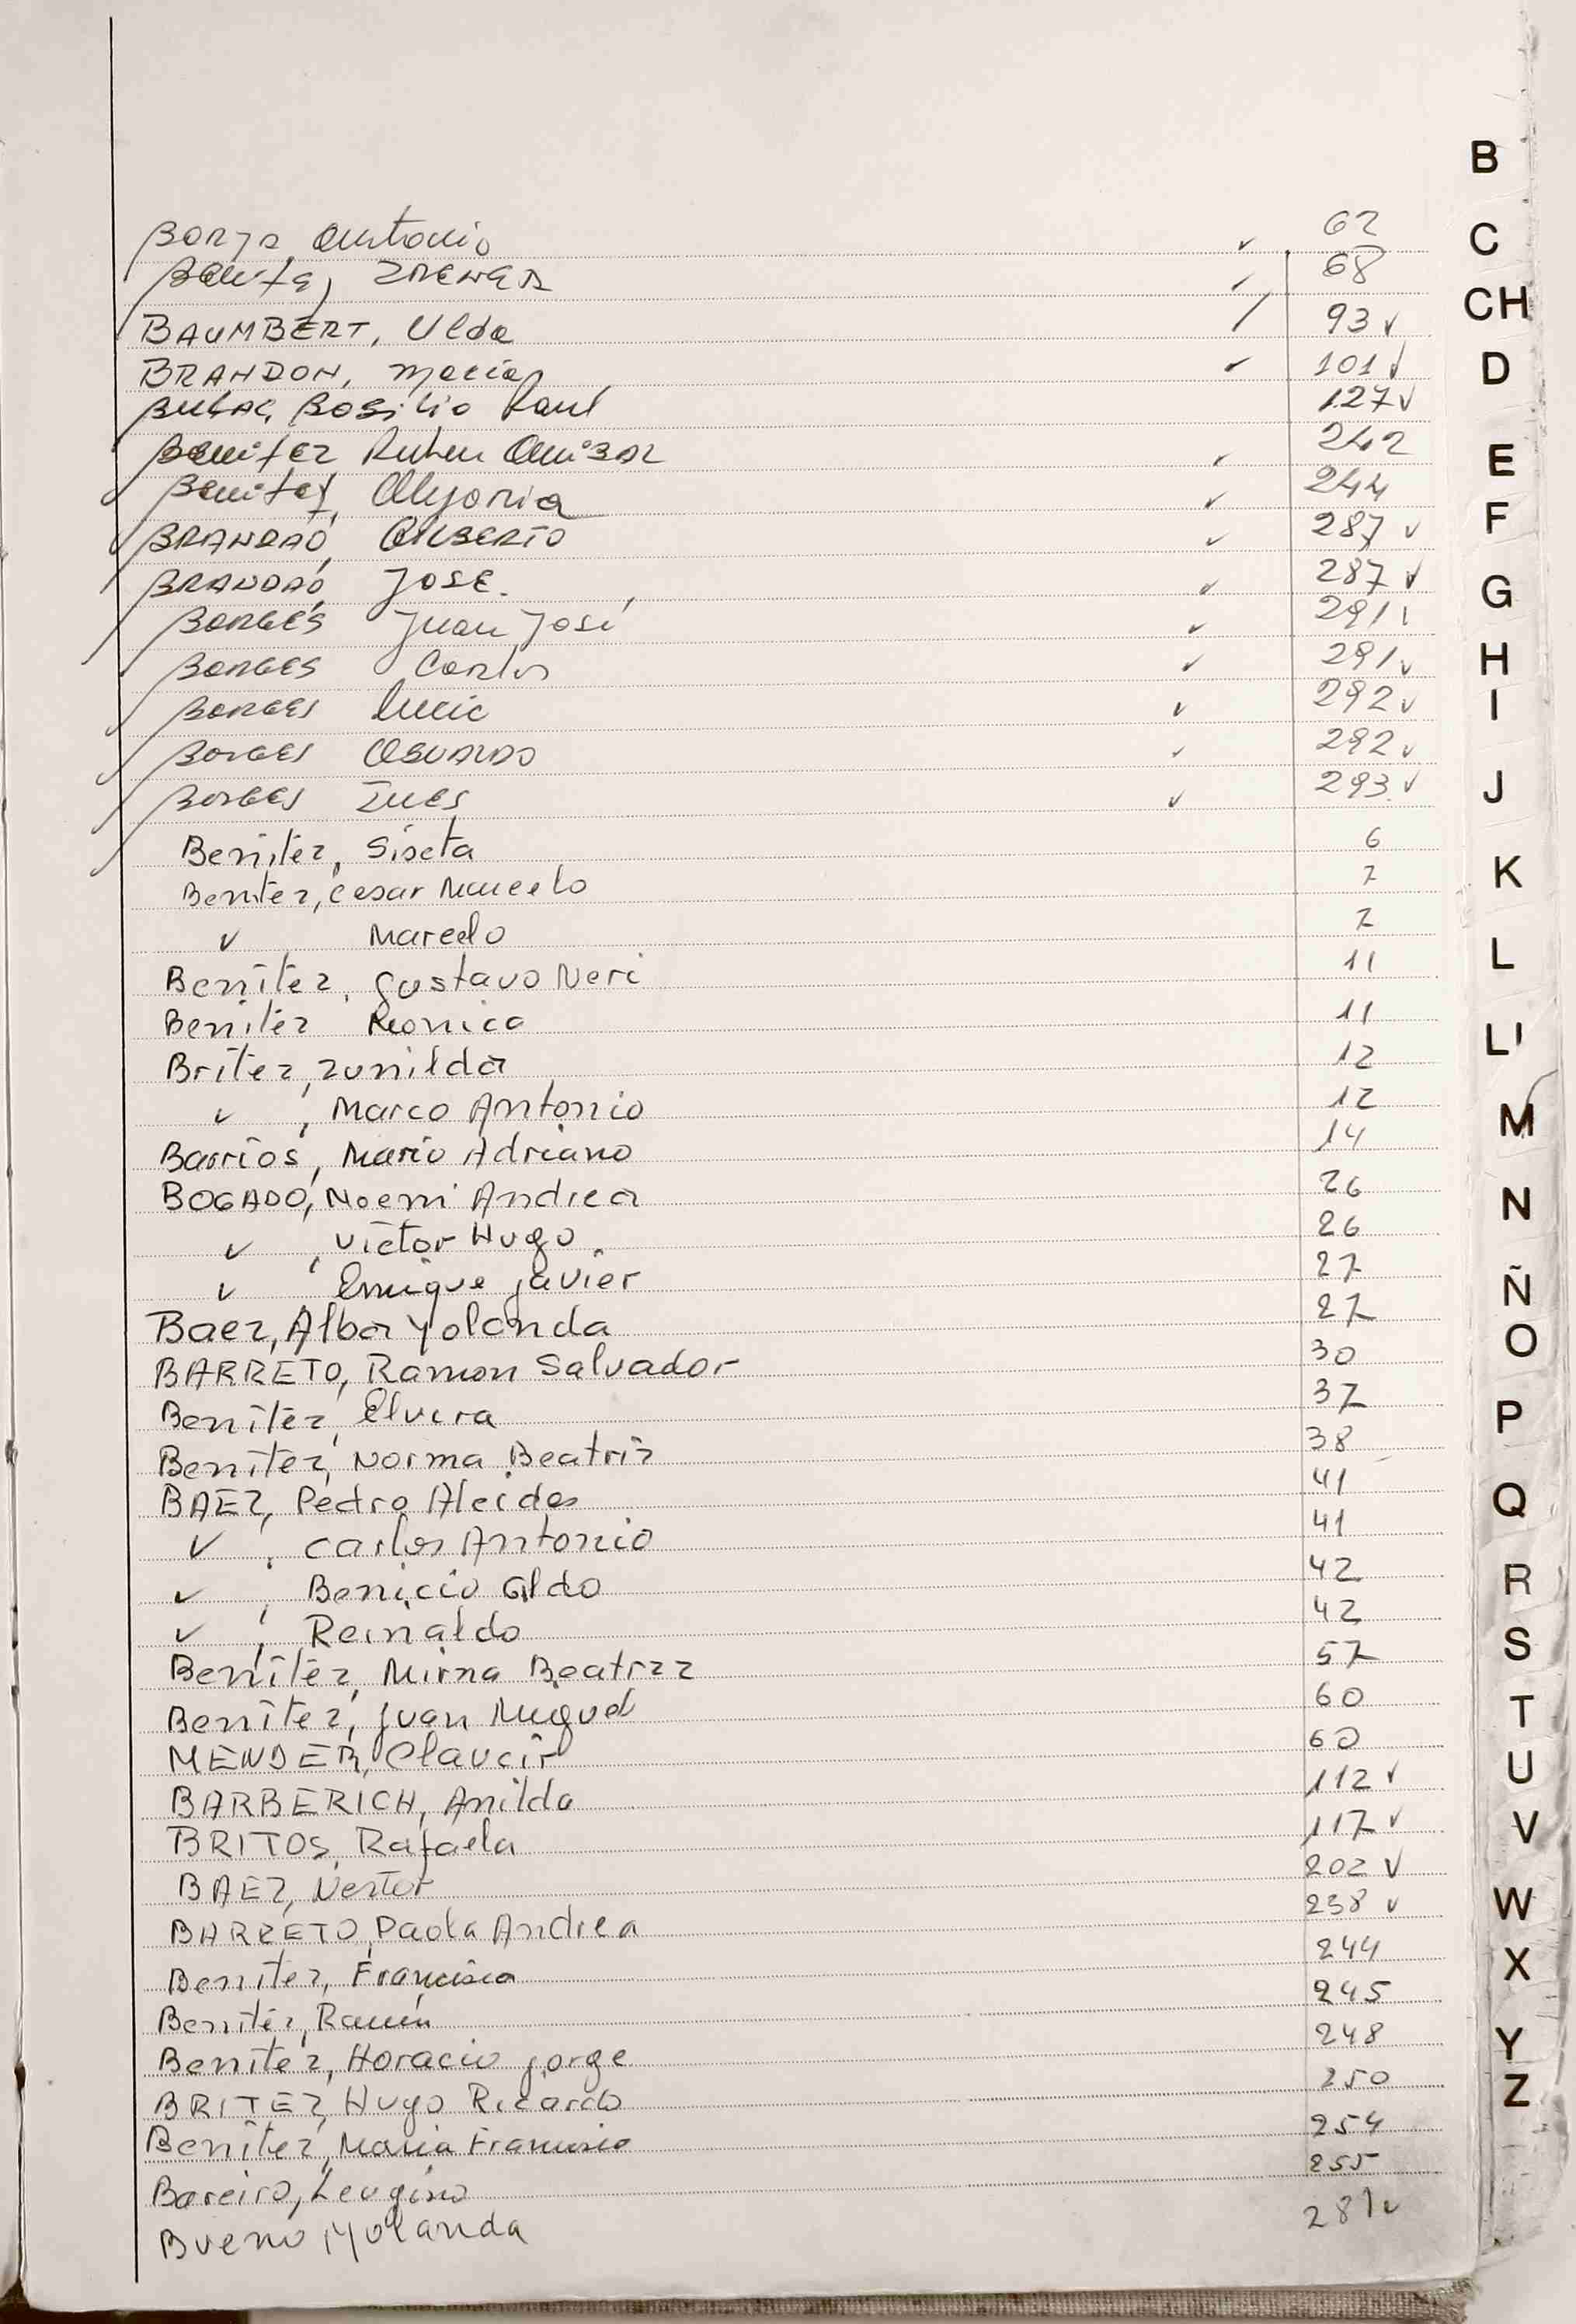 Borja, Antonio ✓ 62
Benitez, ✓ 68
BAUMBERT, Ulda / 93 ✓
BRANDON, Maria ✓ 101 ✓
Basilio Raul 127 ✓
Benitez Ruben ✓ 242
Benitez, ✓ 244
BRANDAÓ, Alberto ✓ 287 ✓
BRANDAÓ, JOSE. ✓ 287 ✓
BORGES Juan José ✓ 291 ✓
BORGES Carlos ✓ 291 ✓
BORGES Lucio ✓ 292 ✓
BORGES OSVALDO ✓ 292 ✓
BORGES INES ✓ 293 ✓
Benitez, Sixta 6
Benitez, Cesar Marcelo 7
✓ Marcelo 7
Benitez, Gustavo Neri 11
Benitez 11
Britez, Zunilda 12
✓ , Marco Antonio 12
Barrios, Mario Adriano 14
BOGADO, Noemi Andrea 26
✓ , Victor Hugo 26
✓ ' Enrique Javier 27
Baez, Alba Yolanda 27
BARRETO, Ramon Salvador 30
Benitez, Elvira 37
Benitez, Norma Beatriz 38
BAEZ, Pedro Alcides 41
✓ , Carlos Antonio 41
✓ , Benicio Aldo 42
✓ , Reinaldo 42
Benitez, Mirna Beatriz 57
Benitez, Juan Miguel 60
MENDER, Claucir 60
BARBERICH, Anilda 112 ✓
BRITOS, Rafaela 117 ✓
BAEZ, Nestor 202 ✓
BARRETO, Paola Andrea 238 ✓
Benitez, Francisca 244
Benitez, Ramón 245
Benitez, Horacio Jorge 248
BRITEZ, Hugo Ricardo 250
Benitez, Maria Francisca 254
Bareiro, 255
Bueno, Yolanda 281 ✓
B
C
CH
D
E
F
G
H
I
J
K
L
Ll
M
N
Ñ
O
P
Q
R
S
T
U
V
W
X
Y
Z